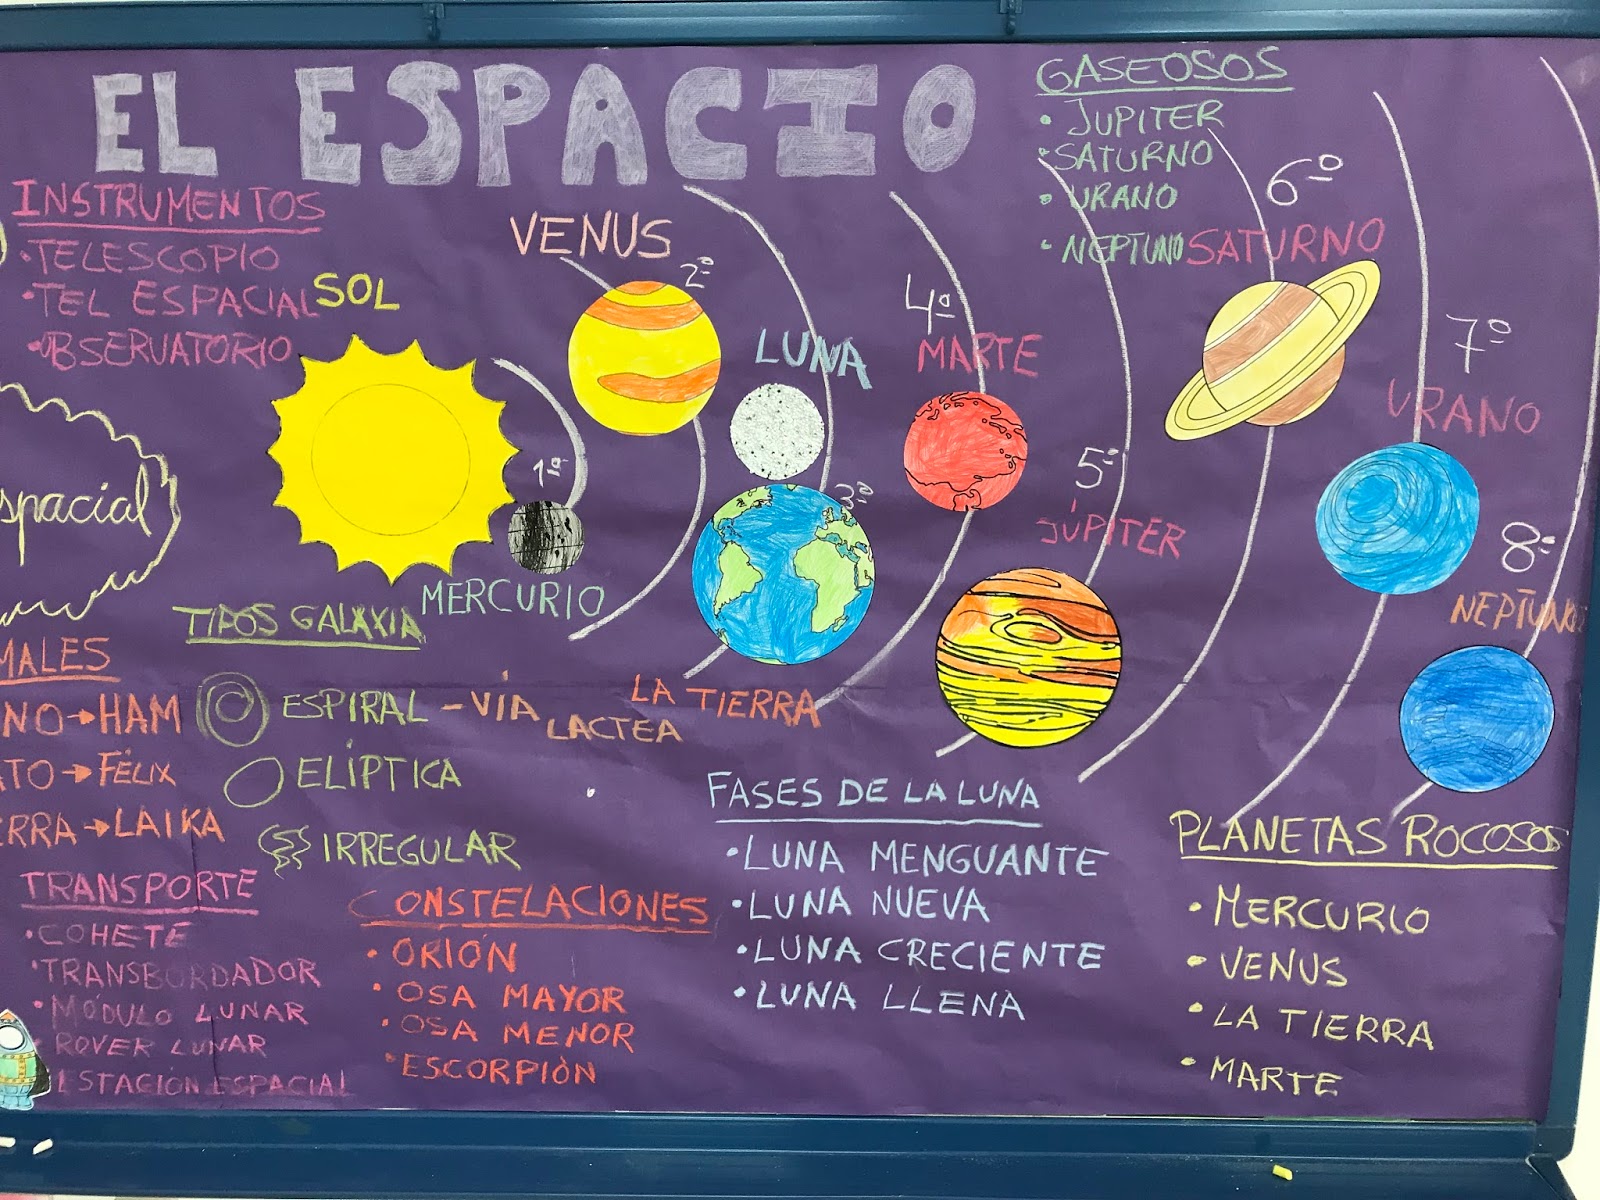 EL ESPACIO
INSTRUMENTOS
• TELESCOPIO
• TEL ESPACIAL
• OBSERVATORIO
SOL
1º
MERCURIO
VENUS
2º
LUNA
3º
LA TIERRA
4º
MARTE
5º
JÚPITER
GASEOSOS
• JUPITER
• SATURNO
• URANO
• NEPTUNO
6º
SATURNO
7º
URANO
8º
NEPTUNO
spacial
MALES
NO → HAM
ATO → FÉLIX
ERRA → LAIKA
TIPOS GALAXIA
ESPIRAL - VÍA LACTEA
ELÍPTICA
IRREGULAR
TRANSPORTE
• COHETE
• TRANSBORDADOR
• MÓDULO LUNAR
• ROVER LUNAR
ESTACIÓN ESPACIAL
CONSTELACIONES
• ORIÓN
• OSA MAYOR
• OSA MENOR
• ESCORPIÓN
FASES DE LA LUNA
• LUNA MENGUANTE
• LUNA NUEVA
• LUNA CRECIENTE
• LUNA LLENA
PLANETAS ROCOSOS
• MERCURIO
• VENUS
• LA TIERRA
• MARTE